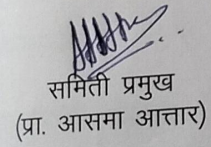 समिती प्रमुख
(प्रा. आसमा आत्तार)